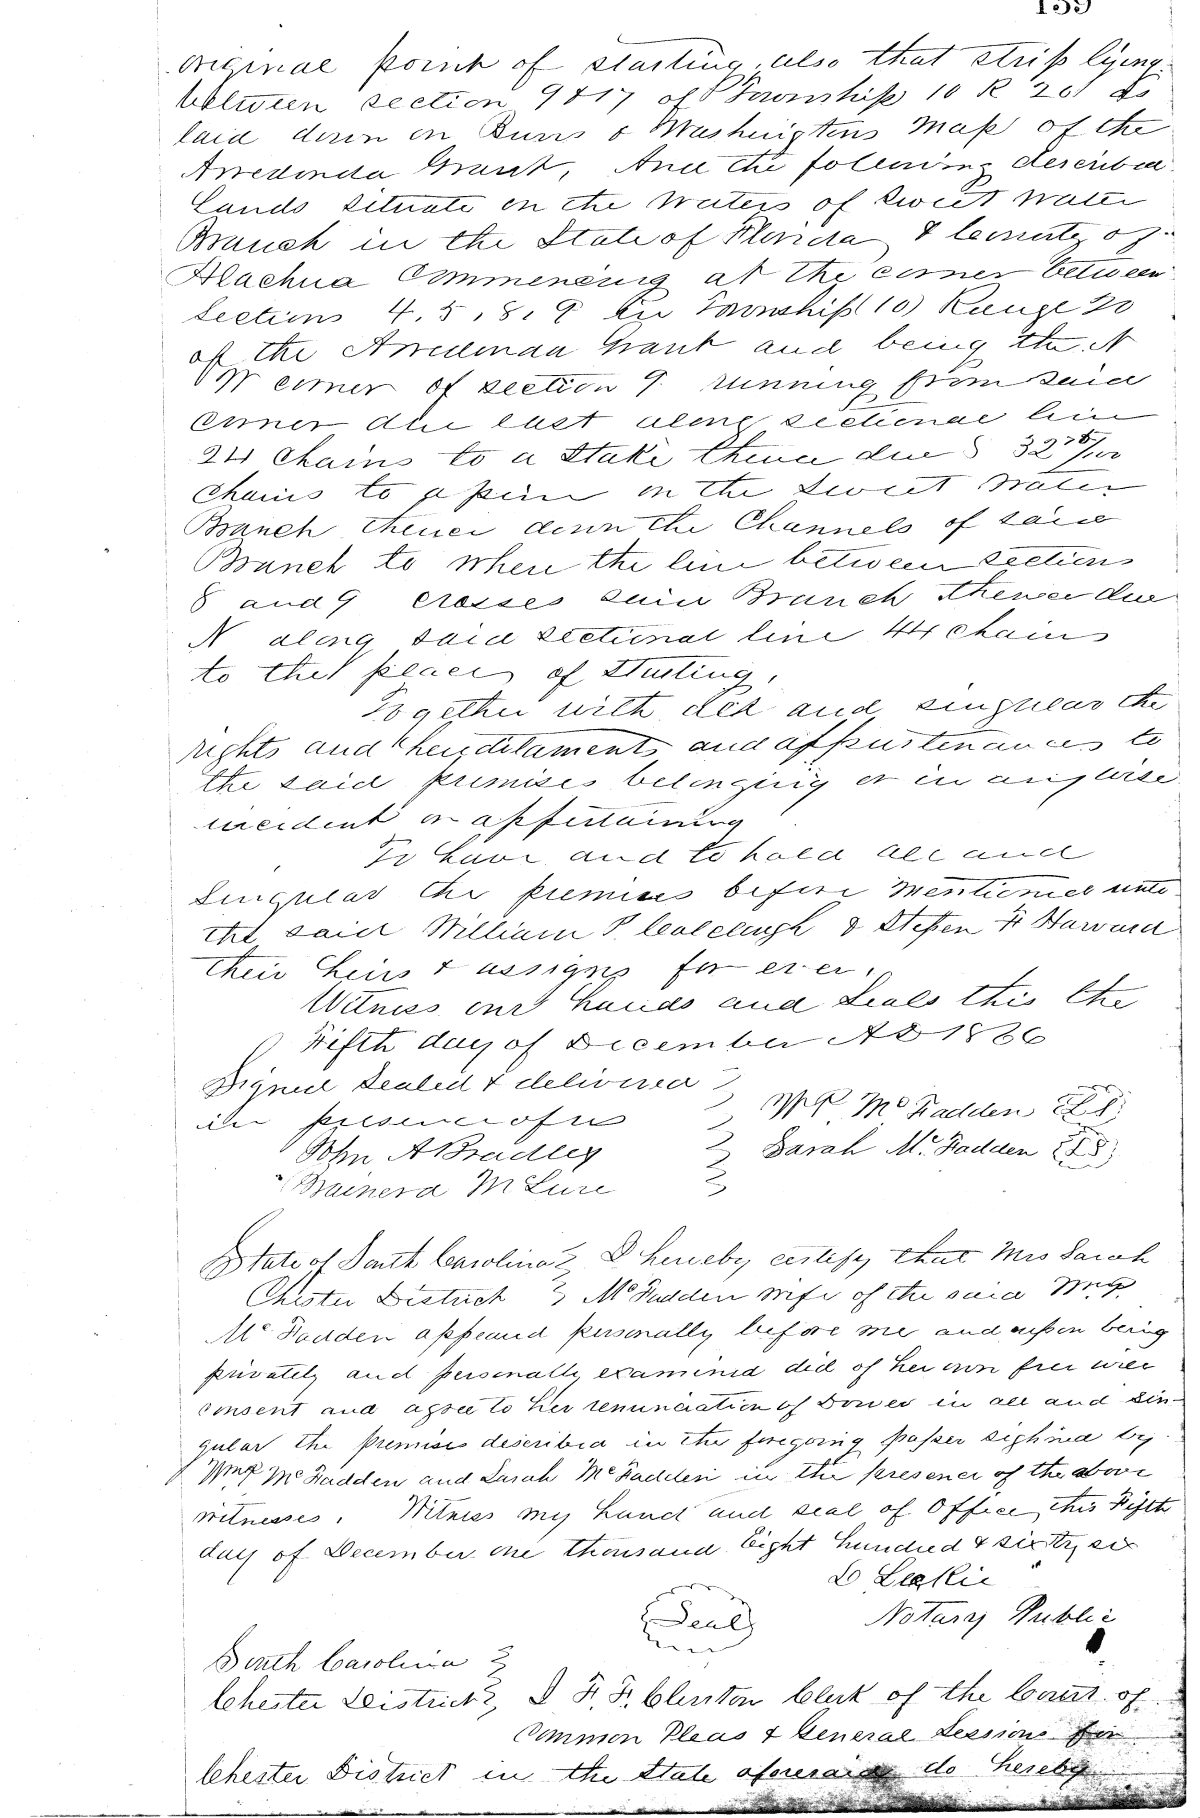 139
original point of starting, also that strip lying
between section 9 & 17 of Township 10 R 20 as
laid down on Burrs & Washingtons Map of the
Arredonda Grant, And the following described
Lands situate on the Waters of Sweet Water
Branch in the State of Florida & County of
Alachua Commencing at the corner between
Sections 4, 5, 8, 9 in Township (10) Range 20
of the Arredonda Grant and being the N
W corner of section 9 running from said
corner due east along sectional line
24 Chains to a Stake thence due S 32 75/100
Chains to a pine on the Sweet Water
Branch thence down the Channels of said
Branch to where the line between sections
8 and 9 crosses said Branch thence due
N along said sectional line 44 chains
to the place of Starting,
Together with all and singular the
rights and hereditaments and appurtenances to
the said premises belonging or in anywise
incident or appertaining
To have and to hold all and
Singular the premises before mentioned unto
the said William P. Colclough & Stephen F Harward
their heirs & assigns for ever,
Witness our hands and Seals this the
Fifth day of December A D 1866
Signed Sealed & delivered
in presence of us W P. McFadden LS
John A Bradley Sarah McFadden LS
Brainerd McLure
State of South Carolina I hereby certify that Mrs Sarah
Chester District McFadden wife of the said Wm P
McFadden appeared personally before me and upon being
privately and personally examined did of her own free will
consent and agree to her renunciation of Dower in all and Sin-
gular the premises described in the foregoing paper sighned by
Wm P McFadden and Sarah McFadden in the presence of the above
witnesses. Witness my hand and seal of Office, this Fifth
day of December one thousand Eight hundred & sixty six
Leckie
Seal Notary Public
South Carolina
Chester District, I F. F. Clenton Clerk of the Court of
Common Pleas & General Sessions for
Chester District in the State aforesaid do hereby